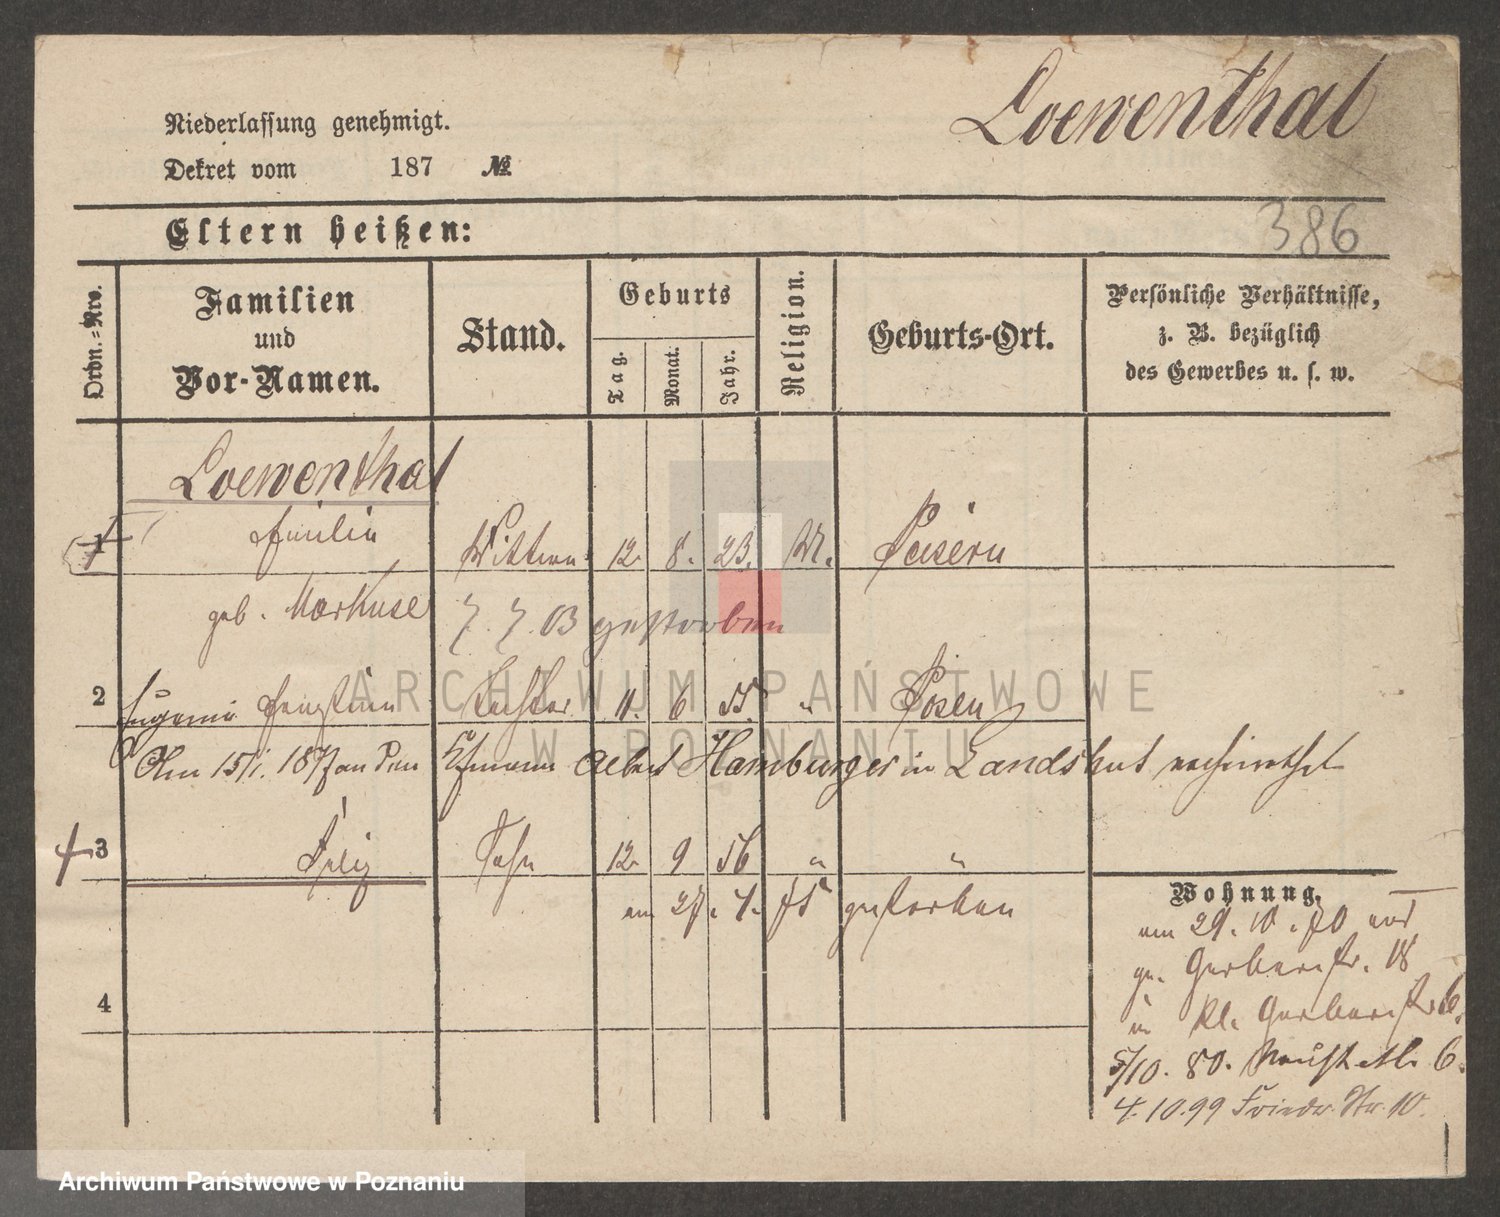 Loewenthal
Niederlassung genehmigt.
Dekret vom 187 №
386
Eltern heißen:
Ordn.=Nro.
Familien
und
Vor-Namen.
Stand.
Geburts
Tag.
Monat.
Jahr.
Religion.
Geburts-Ort.
Persönliche Verhältnisse,
z. B. bezüglich
des Gewerbes u. s. w.
Loewenthal
1 Emilie Wittwe 12. 8. 23. M. Peisern
geb. Markuse 7. 7. 03 gestorben
2 Eugenie Ernstine Tochter 11. 6 55. " Posen
Am 15/1. 187 an den Kfmann Albert Hamburger in Landshut verheirathet
3 Felix Sohn 12. 9 56 " "
am 27. 4. 75 gestorben
4
Wohnung.
am 29. 10. 70 von
gr. Gerberstr. 18
in kl. Gerberstr. 6.
5/10. 80. Neust. Mk. 6.
4.10.99 Friedr. Str. 10.
ARCHIWUM PAŃSTWOWE
W POZNANIU
Archiwum Państwowe w Poznaniu